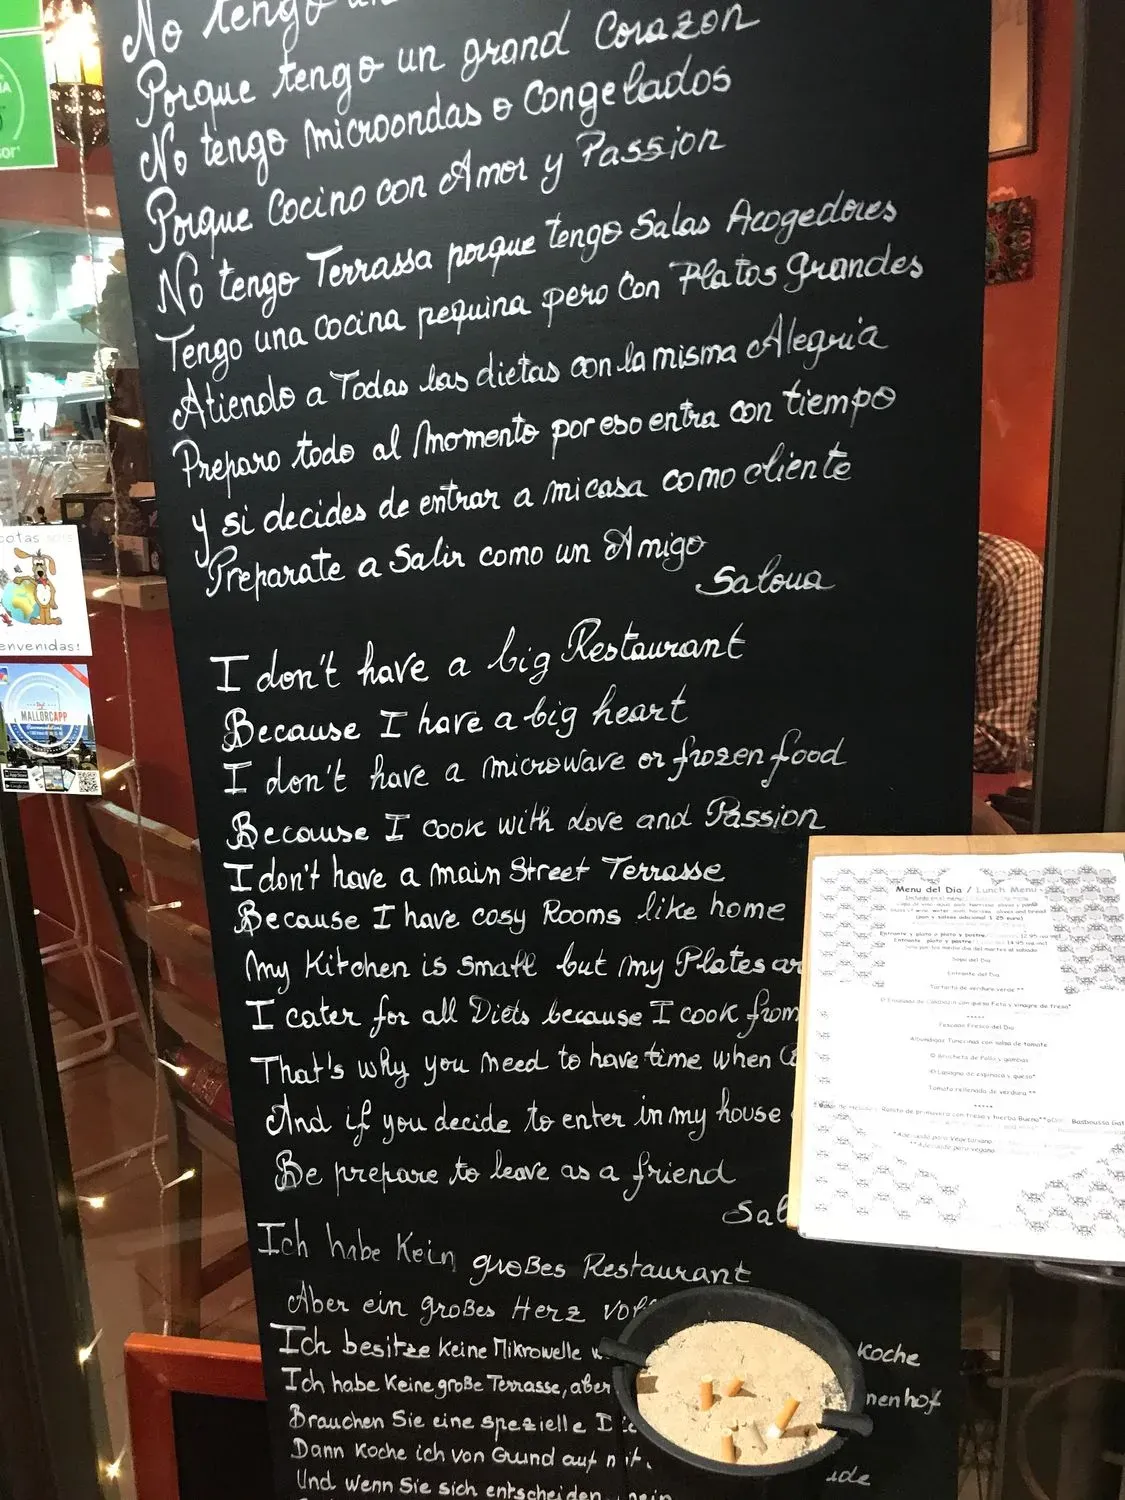 No tengo un
Porque tengo un grand Corazon
No tengo microondas o Congelados
Porque Cocino con Amor y Passion
No tengo Terrassa porque tengo Salas Acogedores
Tengo una cocina pequina pero con Platos grandes
Atiendo a Todas las dietas con la misma Alegria
Preparo todo al Momento por eso entra con tiempo
y si decides de entrar a mi casa como cliente
Preparate a Salir como un Amigo
Saloua
I don't have a big Restaurant
Because I have a big heart
I don't have a microwave or frozen food
Because I cook with Love and Passion
I don't have a main Street Terrasse
Because I have cosy Rooms like home
My Kitchen is small but my Plates ar
I cater for all Diets because I cook from
That's why you need to have time when
And if you decide to enter in my house
Be prepare to leave as a friend
Sal
Ich habe Kein großes Restaurant
Aber ein großes Herz vol
Ich besitze Keine Mikrowelle w
Koche
Ich habe Keine große Terrasse, aber
nenhof
Brauchen Sie eine spezielle
Dann Koche ich von Grund auf mit
ide
Und wenn Sie sich entscheiden mein
envenidas!
MALLORCAPP
Menu del Dia / Lunch Menu
Sopa del Dia
Entrante del Dia
Tartarta de verdura verde**
Pescado Fresco del Dia
Albondigas Tunecinas con salsa de tomate
O Brocheta de Pollo y gambas
O Lasagna de espinaca y queso*
Tomato rellenada de verdura **
*Adecuado para Vegetariano
**Adecuado para vegano